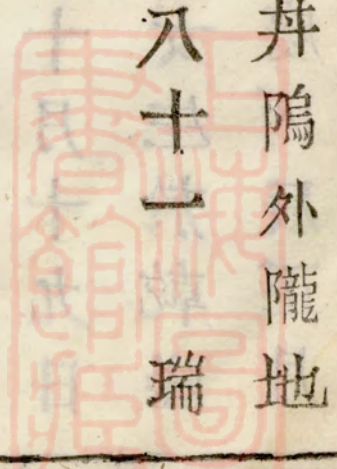 丼隖外隴地
八十一 瑞